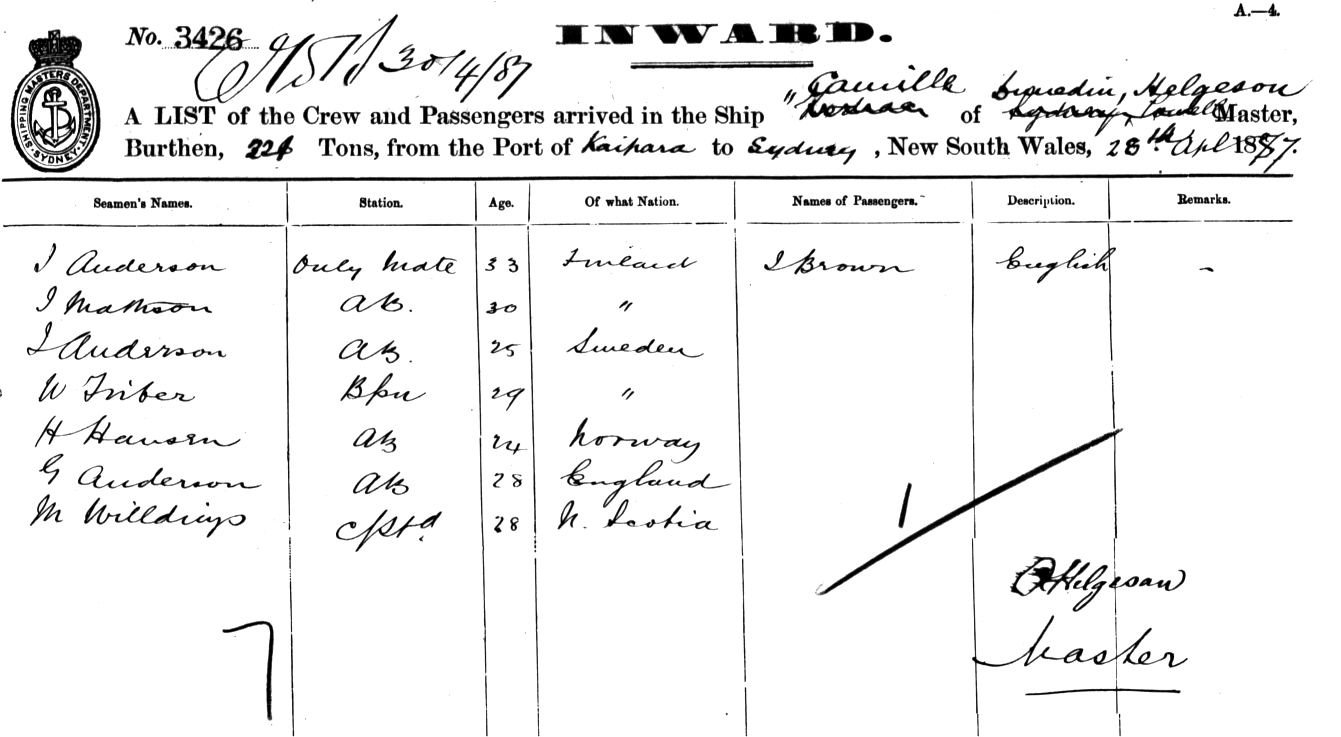 A.—4.
No. 3426
INWARD.
30/4/87
Camille Dunedin, Helgeson
A LIST of the Crew and Passengers arrived in the Ship " of Sydney, Master,
Burthen, 221 Tons, from the Port of Kaipara to Sydney, New South Wales, 28th Apl 1887.
SHIPPING MASTERS DEPARTMENT · SYDNEY ·
Seamen's Names. Station. Age. Of what Nation. Names of Passengers. Description. Remarks.
I Anderson Only Mate 33 Finland I Brown English -
I Mathson AB. 30 "
I Anderson AB. 25 Sweden
W Friber Bpn 29 "
H Hansen AB 24 Norway
G Anderson AB 28 England
M Willdings c/Std. 28 N. Scotia
1
Helgesan
Master
7